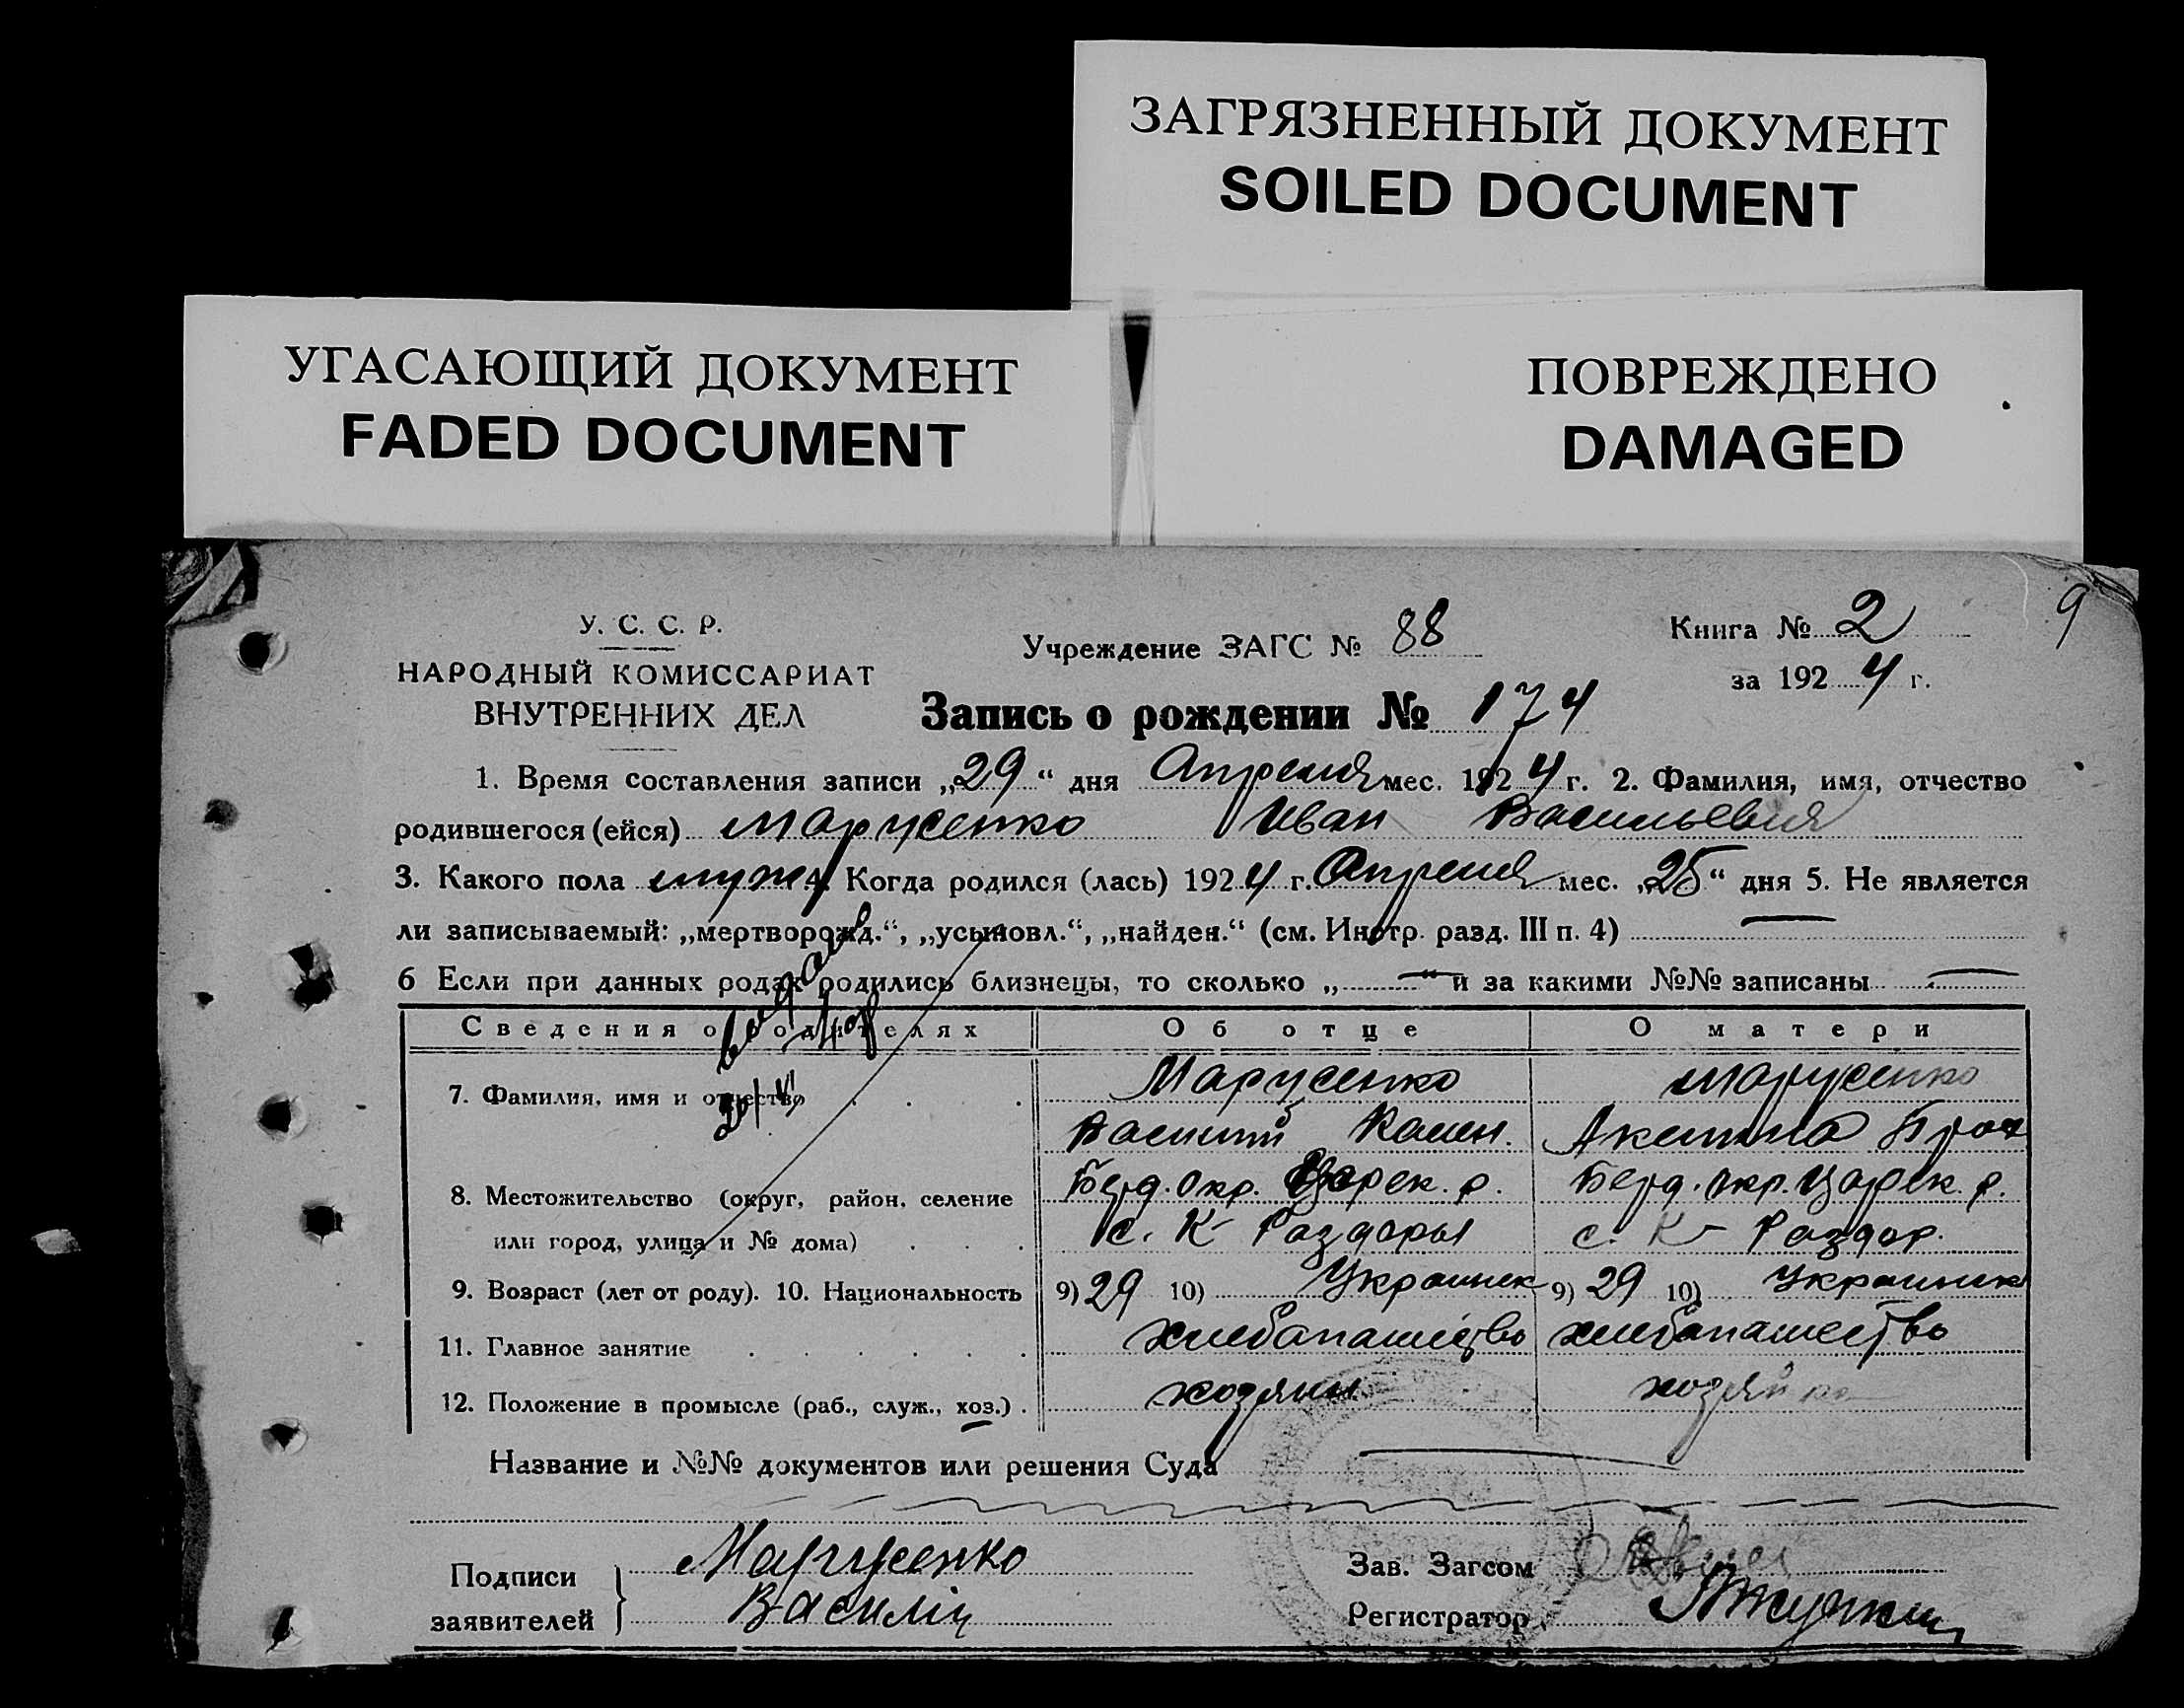 ЗАГРЯЗНЕННЫЙ ДОКУМЕНТ
SOILED DOCUMENT
УГАСАЮЩИЙ ДОКУМЕНТ
FADED DOCUMENT
ПОВРЕЖДЕНО
DAMAGED
9
У. С. С. Р.
НАРОДНЫЙ КОМИССАРИАТ
ВНУТРЕННИХ ДЕЛ
Учреждение ЗАГС № 88
Книга № 2
за 1924 г.
Запись о рождении № 174
1. Время составления записи „29“ дня Апреля мес. 1924 г. 2. Фамилия, имя, отчество
родившегося (ейся) Марусенко Иван Васильевич
3. Какого пола муж 4. Когда родился (лась) 1924 г. Апреля мес. „25“ дня 5. Не является
ли записываемый: „мертворожд.“, „усыновл.“, „найден.“ (см. Инстр. разд. III п. 4) —
6 Если при данных родах родились близнецы, то сколько „—“ и за какими №№ записаны —
Сведения о родителях Об отце О матери
7. Фамилия, имя и отчество Марусенко Марусенко
Василий Акилина
8. Местожительство (округ, район, селение Берд. окр. Царек. р. Берд. окр. Царек. р.
или город, улица и № дома) с. К- Раздоры с. К- Раздор.
9. Возраст (лет от роду). 10. Национальность 9) 29 10) Украинек 9) 29 10) Украинка
11. Главное занятие хлебопашество хлебопашество
12. Положение в промысле (раб., служ., хоз.) хозяин хозяйка
Название и №№ документов или решения Суда
Подписи Марусенко
заявителей Василий
Зав. Загсом
Регистратор